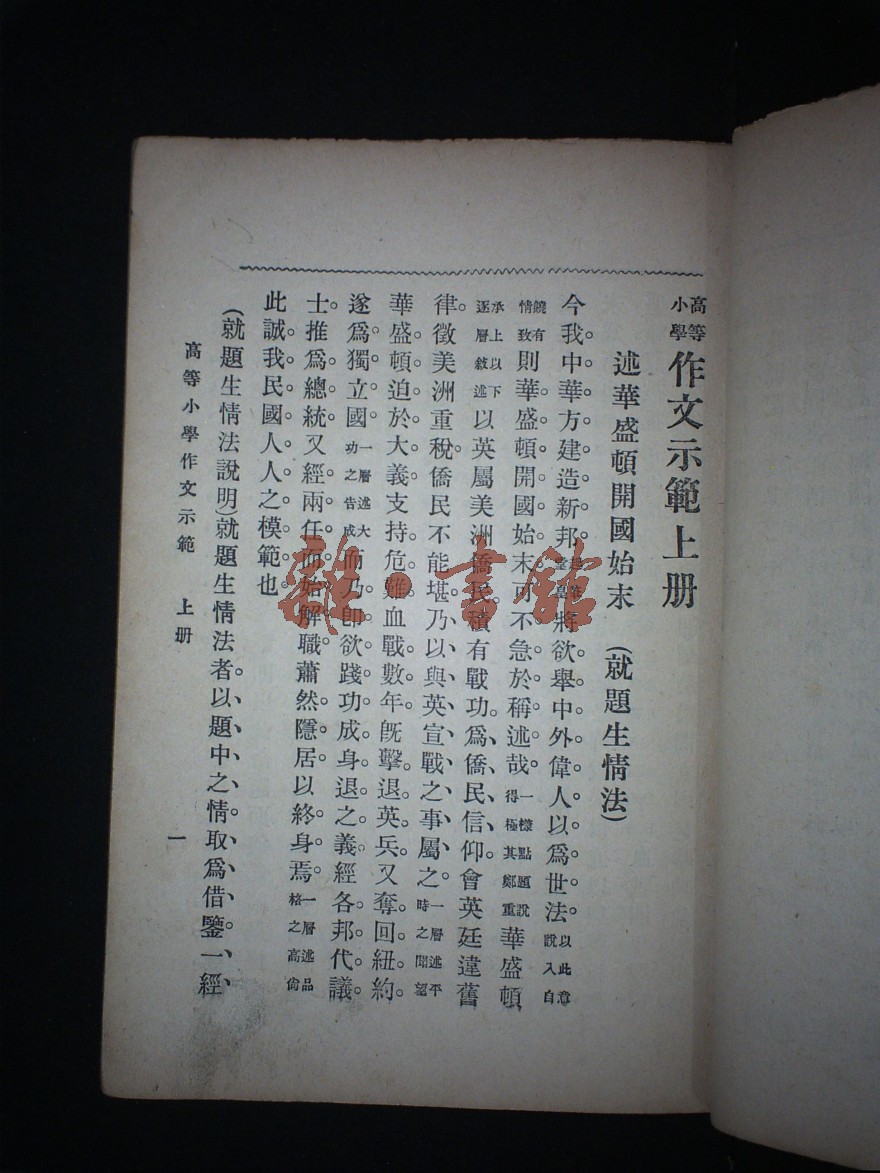 高等小學作文示範上册
述華盛頓開國始末 (就題生情法)
今我中華方建造新邦。將欲舉中外偉人以爲世法。以此意說入自
饒有情致則華盛頓開國始末可不急於稱述哉。一樣點題說得極其鄭重華盛頓
承上以下逐層敘述以英屬美洲僑民積有戰功。爲僑民信仰。會英廷違舊
律。徵美洲重稅僑民不能堪。乃以與英宣戰之事屬之一層述平時之聞望
華盛頓迫於大義支持危難。血戰數年。旣擊退英兵。又奪回紐約。
遂爲獨立國。一層述大功之告成而乃卽欲踐功成身退之義經各邦代議
士。推爲總統又經兩任而始解職。蕭然隱居以終身焉。一層述品格之高尙
此誠我民國人人之模範也。
(就題生情法說明)就題生情法者。以題中之情、取爲借鑒、一經
高等小學作文示範 上册 一
雜·書館